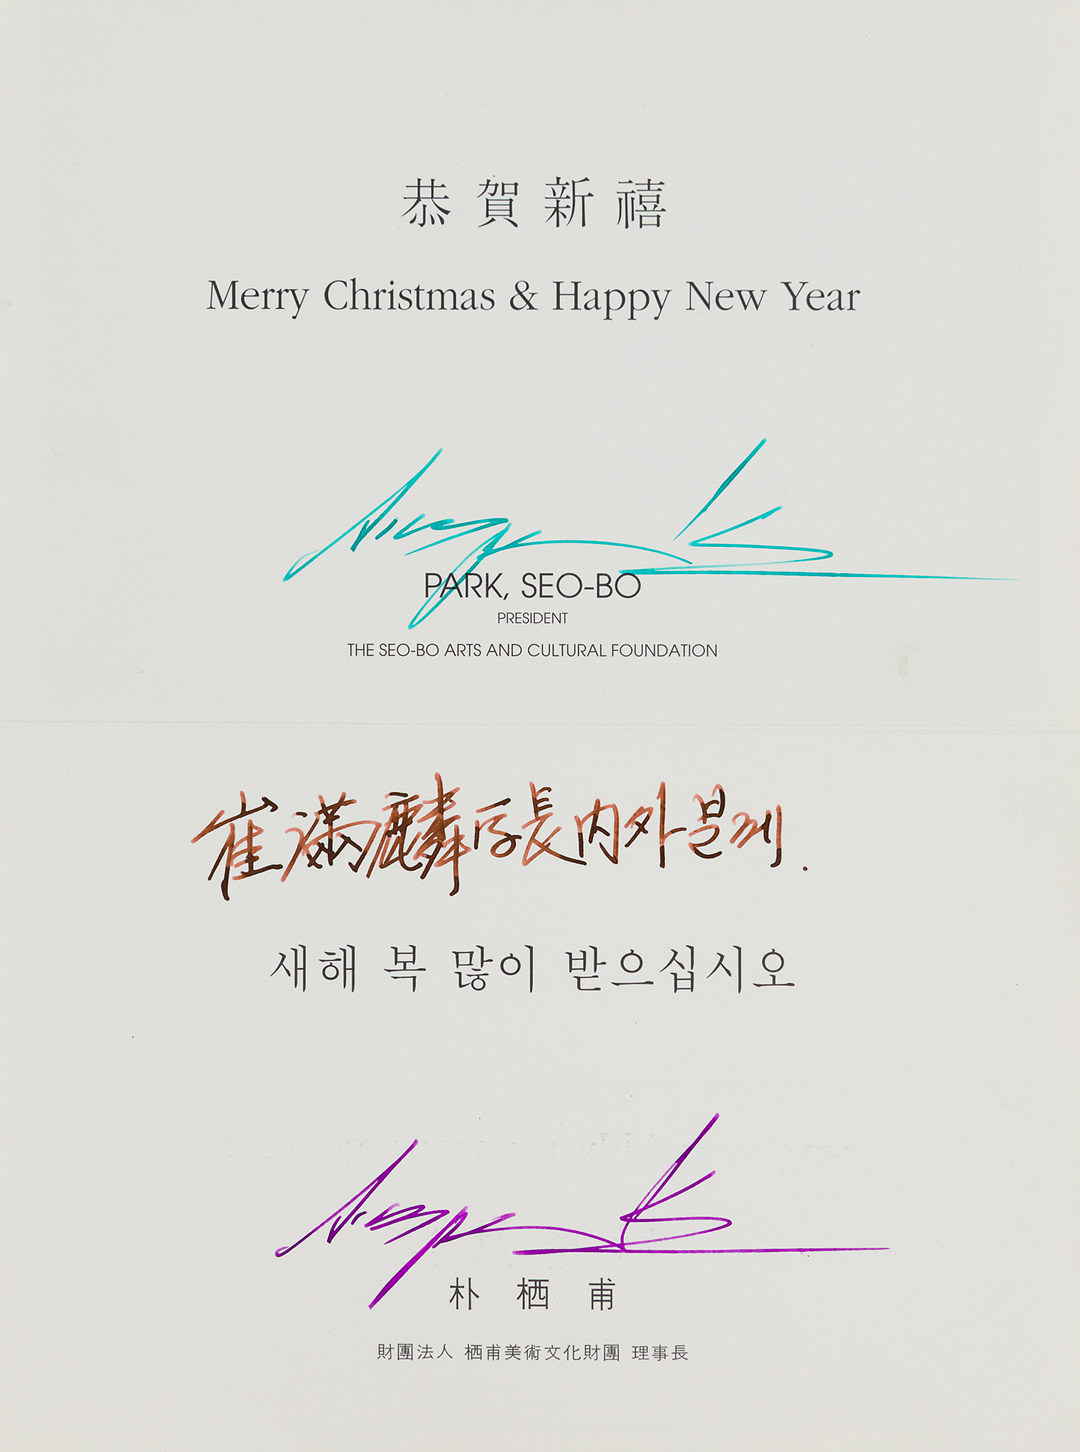 恭賀新禧
Merry Christmas & Happy New Year
PARK, SEO-BO
PRESIDENT
THE SEO-BO ARTS AND CULTURAL FOUNDATION
崔満麟学長内外분께.
새해 복 많이 받으십시오
朴栖甫
財團法人 栖甫美術文化財團 理事長